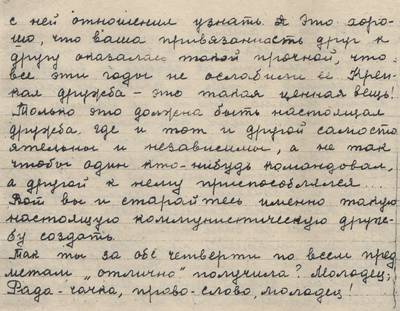 с ней отношения узнать. А это хоро-
шо, что ваша привязанность друг к
другу оказалась такой прочной, что
все эти годы не ослабили ее. Креп-
кая дружба - это такая ценная вещь!
Только это должна быть настоящая
дружба, где и тот и другой самосто
ятельны и независимы, а не так
чтобы один кто-нибудь командовал,
а другой к нему приспособлялся...
Вот вы и старайтесь именно такую
настоящую коммунистическую друж-
бу создать.
Так ты за обе четверти по всем пред
метам „отлично" получила? Молодец;
Рада-чачка, право-слово, молодец!